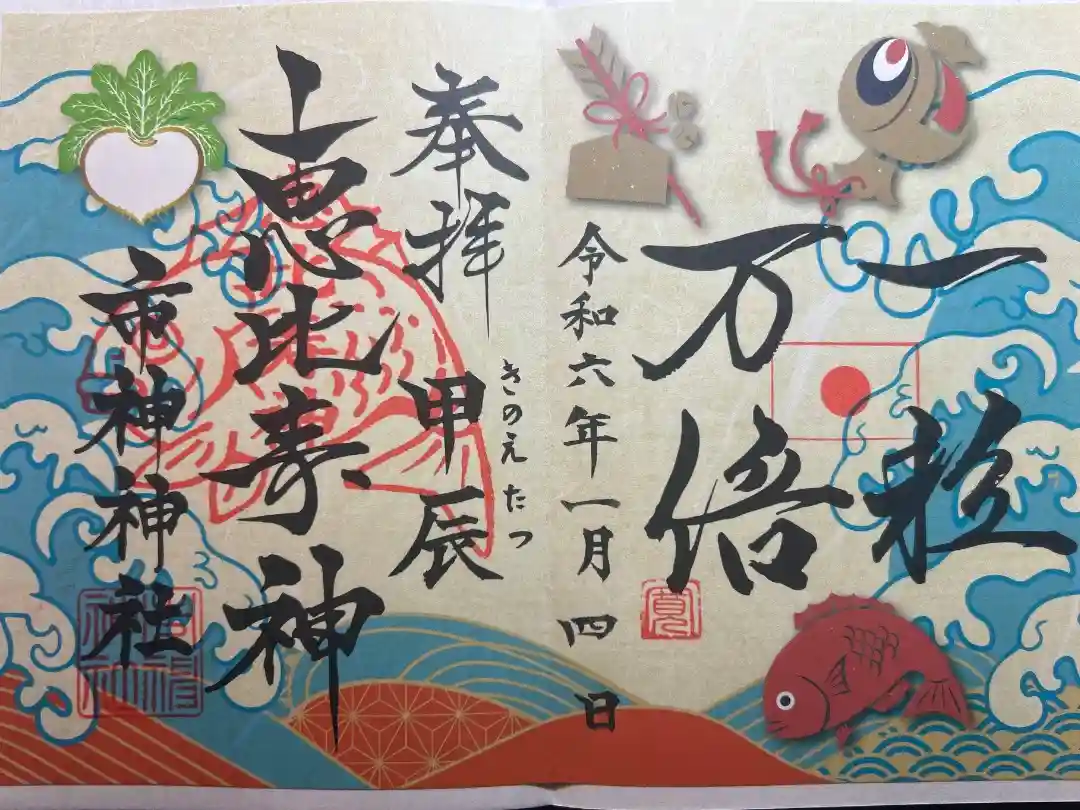 一粒
万倍
令和六年一月四日
きのえ たつ
奉拝 甲辰
十恵比寿神
市神神社